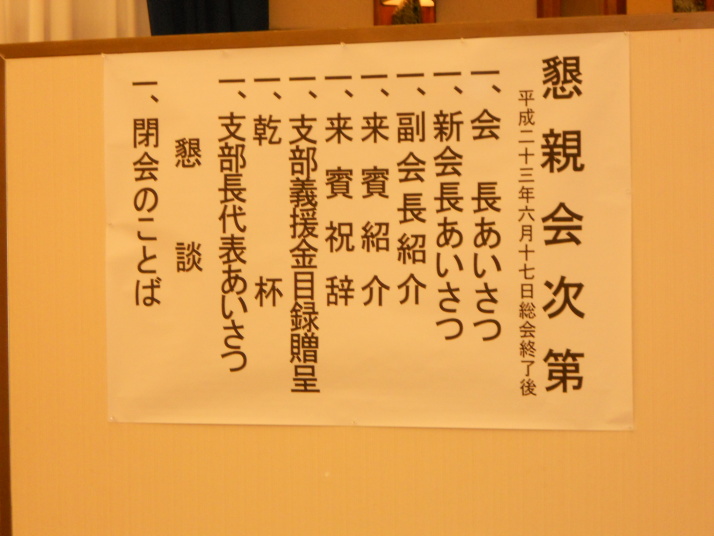 懇親会次第
平成二十三年六月十七日総会終了後
一、会　長あいさつ
一、新会長あいさつ
一、副会長紹介
一、来賓紹介
一、来賓祝辞
一、支部義援金目録贈呈
一、乾　　杯
一、支部長代表あいさつ
懇　　談
一、閉会のことば